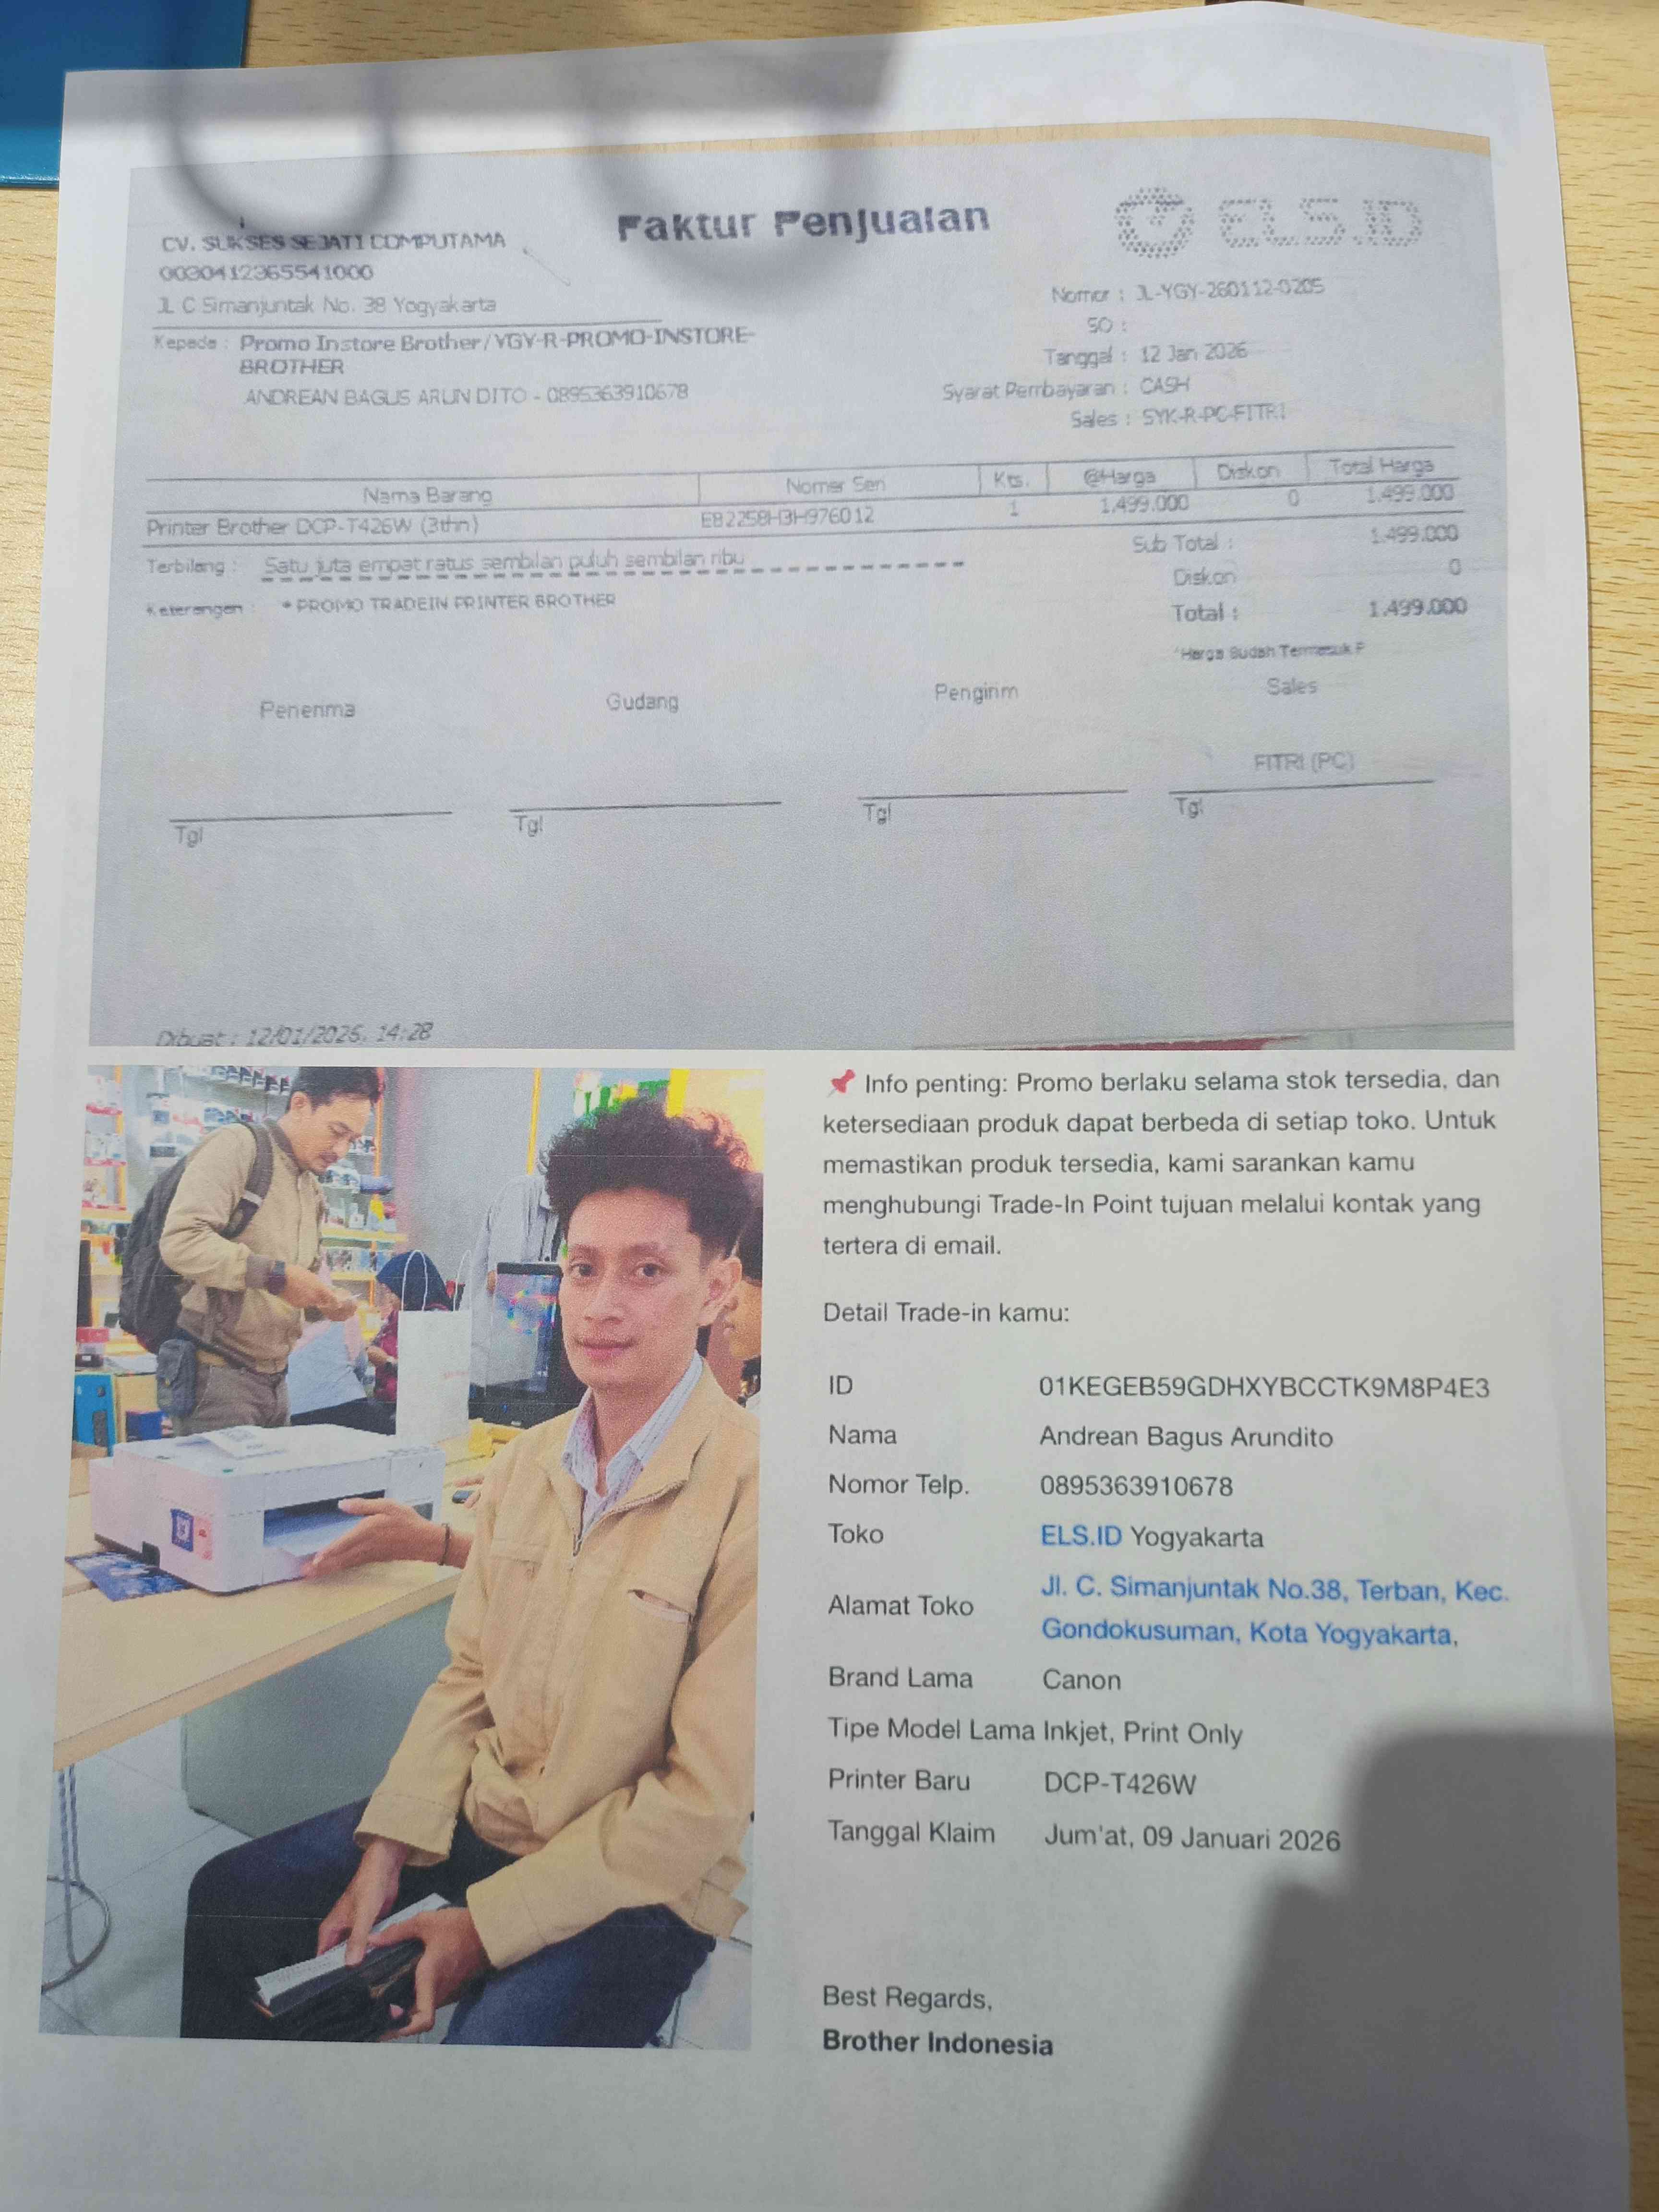 Faktur Penjualan
ELS.ID
CV. SUKSES SEJATI COMPUTAMA
0030412365541000
JL C Simanjuntak No. 38 Yogyakarta
Kepada : Promo Instore Brother/YGY-R-PROMO-INSTORE-
BROTHER
ANDREAN BAGUS ARUN DITO - 0895363910678
Nomor : JL-YGY-260112-0205
SO :
Tanggal : 12 Jan 2026
Syarat Pembayaran : CASH
Sales : SYK-R-PC-FITRI
Nama Barang Nomer Seri Kts. @Harga Diskon Total Harga
Printer Brother DCP-T426W (3thn) E82258H3H976012 1 1.499.000 0 1.499.000
Terbilang : Satu juta empat ratus sembilan puluh sembilan ribu
Keterangan : * PROMO TRADEIN PRINTER BROTHER
Sub Total : 1.499.000
Diskon 0
Total : 1.499.000
*Harga Sudah Termasuk P
Penerima Gudang Pengirim Sales
FITRI (PC)
Tgl Tgl Tgl Tgl
Dibuat : 12/01/2026, 14:28
📌 Info penting: Promo berlaku selama stok tersedia, dan
ketersediaan produk dapat berbeda di setiap toko. Untuk
memastikan produk tersedia, kami sarankan kamu
menghubungi Trade-In Point tujuan melalui kontak yang
tertera di email.
Detail Trade-in kamu:
ID 01KEGEB59GDHXYBCCTK9M8P4E3
Nama Andrean Bagus Arundito
Nomor Telp. 0895363910678
Toko ELS.ID Yogyakarta
Alamat Toko Jl. C. Simanjuntak No.38, Terban, Kec.
Gondokusuman, Kota Yogyakarta,
Brand Lama Canon
Tipe Model Lama Inkjet, Print Only
Printer Baru DCP-T426W
Tanggal Klaim Jum'at, 09 Januari 2026
Best Regards,
Brother Indonesia